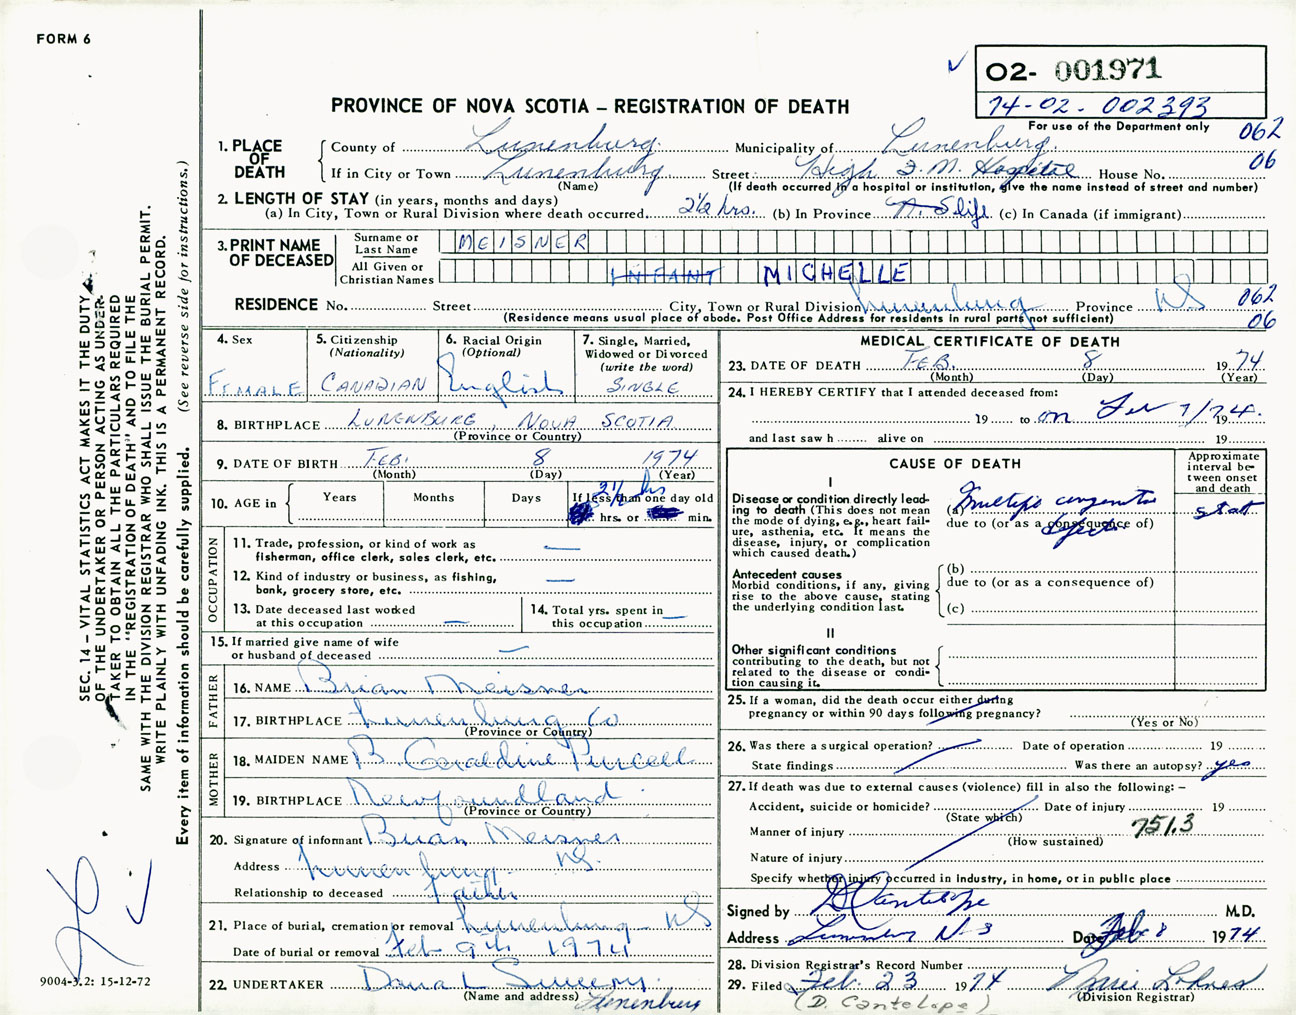 FORM 6
02- 001971
74-02-002393
For use of the Department only
062
06
PROVINCE OF NOVA SCOTIA – REGISTRATION OF DEATH
1. PLACE OF DEATH
County of Lunenburg. Municipality of Lunenburg.
If in City or Town Lunenburg Street F. M. Hospital House No.
(Name) (If death occurred in a hospital or institution, give the name instead of street and number)
2. LENGTH OF STAY (in years, months and days)
(a) In City, Town or Rural Division where death occurred. 2½ hrs. (b) In Province life (c) In Canada (if immigrant)
3. PRINT NAME OF DECEASED
Surname or Last Name MEISNER
All Given or Christian Names INFANT MICHELLE
RESIDENCE No. Street City, Town or Rural Division Lunenburg Province NS
062
06
(Residence means usual place of abode. Post Office Address for residents in rural parts not sufficient)
4. Sex
FEMALE
5. Citizenship
(Nationality)
CANADIAN
6. Racial Origin
(Optional)
English
7. Single, Married,
Widowed or Divorced
(write the word)
SINGLE
8. BIRTHPLACE LUNENBURG, NOVA SCOTIA
(Province or Country)
9. DATE OF BIRTH FEB. 8 1974
(Month) (Day) (Year)
10. AGE in
Years Months Days If less than one day old
2½ hrs
hrs. or min.
OCCUPATION
11. Trade, profession, or kind of work as
fisherman, office clerk, sales clerk, etc. —
12. Kind of industry or business, as fishing,
bank, grocery store, etc. —
13. Date deceased last worked
at this occupation —
14. Total yrs. spent in
this occupation —
15. If married give name of wife
or husband of deceased —
FATHER
16. NAME Brian Meisner
17. BIRTHPLACE Lunenburg Co
(Province or Country)
MOTHER
18. MAIDEN NAME B Geraldine Purcell
19. BIRTHPLACE Newfoundland
(Province or Country)
20. Signature of informant Brian Meisner
Address Lunenburg. NS.
Relationship to deceased father
21. Place of burial, cremation or removal Lunenburg NS
Date of burial or removal Feb 9th 1974
22. UNDERTAKER Dana L Sweeny.
(Name and address) Lunenburg
MEDICAL CERTIFICATE OF DEATH
23. DATE OF DEATH FEB. 8 1974
(Month) (Day) (Year)
24. I HEREBY CERTIFY that I attended deceased from:
19 to on Feb /74. 19
and last saw h alive on 19
CAUSE OF DEATH
Approximate
interval be-
tween onset
and death
I
Disease or condition directly lead-
ing to death (This does not mean
the mode of dying, e.g., heart fail-
ure, asthenia, etc. It means the
disease, injury, or complication
which caused death.)
(a) Multiple congenital
due to (or as a consequence of)
defects
Antecedent causes
Morbid conditions, if any, giving
rise to the above cause, stating
the underlying condition last.
(b)
due to (or as a consequence of)
(c)
II
Other significant conditions
contributing to the death, but not
related to the disease or condi-
tion causing it.
25. If a woman, did the death occur either during
pregnancy or within 90 days following pregnancy?
(Yes or No)
26. Was there a surgical operation? Date of operation 19
State findings Was there an autopsy? yes
27. If death was due to external causes (violence) fill in also the following: –
Accident, suicide or homicide? Date of injury 19
(State which)
Manner of injury 751.3
(How sustained)
Nature of injury
Specify whether injury occurred in industry, in home, or in public place
Signed by D Cantelope M.D.
Address Lunenburg N.S Date Feb 8 1974
28. Division Registrar's Record Number
29. Filed Feb. 23 1974
(Division Registrar)
(D. Cantelope)
SEC. 14 – VITAL STATISTICS ACT MAKES IT THE DUTY
OF THE UNDERTAKER OR PERSON ACTING AS UNDER-
TAKER TO OBTAIN ALL THE PARTICULARS REQUIRED
IN THE "REGISTRATION OF DEATH" AND TO FILE THE
SAME WITH THE DIVISION REGISTRAR WHO SHALL ISSUE THE BURIAL PERMIT.
WRITE PLAINLY WITH UNFADING INK. THIS IS A PERMANENT RECORD.
Every item of information should be carefully supplied. (See reverse side for instructions.)
9004-3.2: 15-12-72